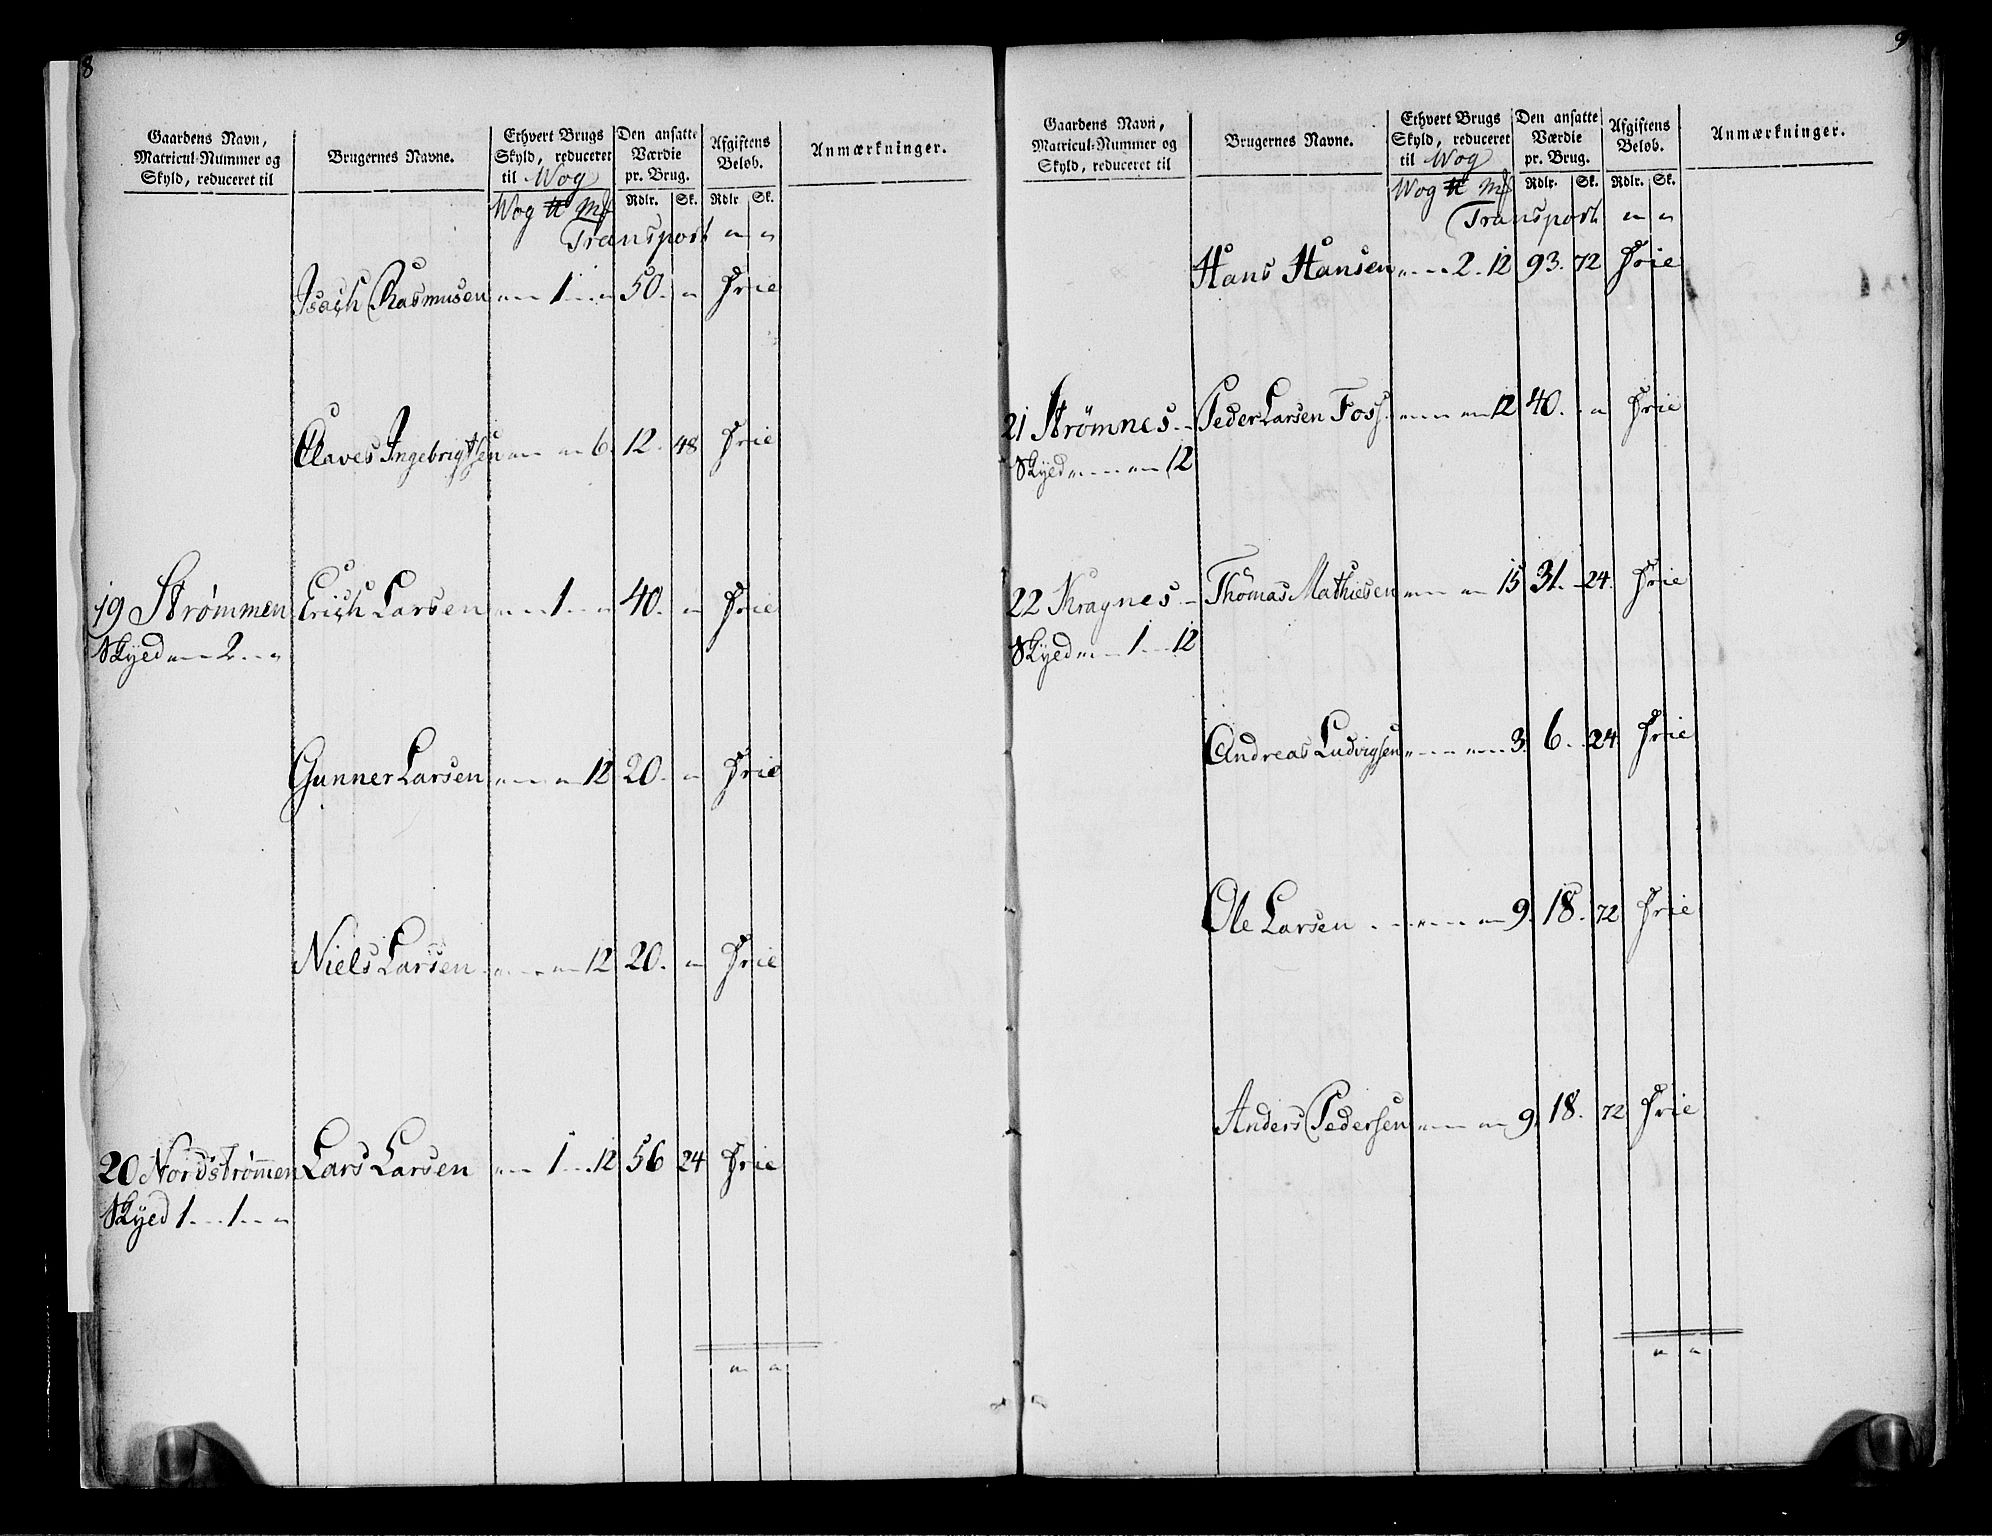 8
Gaardens Navn, Matricul-Nummer og Skyld, reduceret til
Brugernes Navne.
Ethvert Brugs Skyld, reduceret til Wog
Den ansatte Værdie pr. Brug.
Afgiftens Beløb.
Anmærkninger.
Wog ℔ Mk Rdlr. Sk. Rdlr Sk.
Transport " "
Isach Rasmusen " 1 " 50. " Frie
Claves Ingebrigtsen " " 6. 12. 48 Frie
19 Strømmen Erich Larsen " 1 " 40. " Frie
Skyed " 2 "
Gunner Larsen " " 12 20. " Frie
Niels Larsen " " 12 20. " Frie
20 Nordstrømmen Lars Larsen " 1 12 56 24 Frie
Skyed 1 1 "
" "
9
Gaardens Navn, Matricul-Nummer og Skyld, reduceret til
Brugernes Navne.
Ethvert Brugs Skyld, reduceret til Wog
Den ansatte Værdie pr. Brug.
Afgiftens Beløb.
Anmærkninger.
Wog ℔ Mk Rdlr. Sk. Rdlr. Sk.
Transport " "
Hans Hansen " 2. 12 93. 72 Frie
21 Strømnes Peder Larsen Foss. " " 12 40. " Frie
Skyed " " 12
22 Kragnes Thomas Mathiesen " " 15 31. 24. Frie
Skyed " 1 12
Andreas Ludvigsen " " 3. 6. 24. Frie
Ole Larsen " " 9. 18. 72 Frie
Anders Pedersen " " 9. 18. 72 Frie
" "